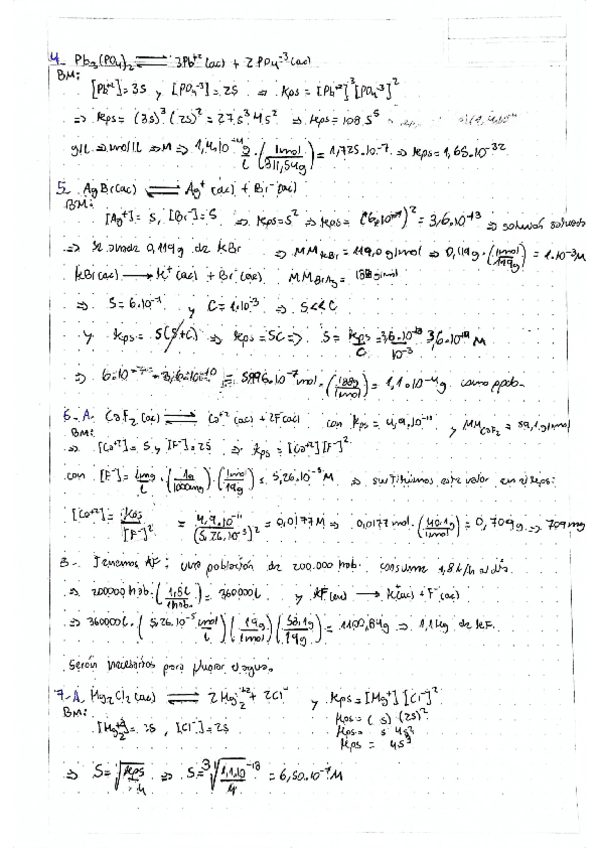 4- Pb3(PO4)2 ⇌ 3Pb+2 (ac) + 2PO4-3 (ac)
BM:
[Pb+2] = 3S y [PO4-3] = 2S ⇒ Kps = [Pb+2]3 [PO4-3]2
⇒ Kps = (3s)3 (2s)2 = 27s3 4s2 ⇒ Kps = 108 S5
g/L ⇒ mol/L ⇒ M ⇒ 1,4·10-4 g/L · (1mol/811,54g) = 1,725·10-7 ⇒ Kps = 1,65·10-32
5- AgBr(ac) ⇌ Ag+ (ac) + Br- (ac)
BM:
[Ag+] = S, [Br-] = S ⇒ Kps = S2 ⇒ Kps = (6·10-7)2 = 3,6·10-13 ⇒
⇒ Se añade 0,119g de KBr ⇒ MM KBr = 119,0 g/mol ⇒ 0,119g · (1mol/119g) = 1·10-3 M
KBr(ac) → K+ (ac) + Br (ac) MM BrAg = 188 g/mol
⇒ S = 6·10-7 y C = 1·10-3 ⇒ S<<C
y Kps = S(S+C) ⇒ Kps = SC ⇒ S = Kps/C = 3,6·10-13/10-3 3,6·10-10 M
⇒ 6·10-7 - 3,6·10-10 = 5,996·10-7 mol · (188g/1mol) = 1,1·10-4 g como ppdo.
6- A. CaF2 (ac) ⇌ Ca+2 (ac) + 2F(ac) con Kps = 4,9·10-11 y MM CaF2 = 59,1 g/mol
BM:
⇒ [Ca+2] = S y [F-] = 2S ⇒ Kps = [Ca+2][F-]2
con [F-] = 1mg/L · (1g/1000mg) · (1mol/19g) = 5,26·10-5 M ⇒ sustituimos este valor en el Kps:
[Ca+2] = Kps/[F-]2 = 4,9·10-11/(5,26·10-5)2 = 0,0177M ⇒ 0,0177 mol · (40,1g/1mol) = 0,709g ⇒ 709mg
B- Tenemos KF: una población de 200.000 hab. consume 1,8L/h al día.
⇒ 200000 hab · (1,8L/1hab.) = 360000L y KF(ac) → K+(ac) + F-(ac)
⇒ 360000L · (5,26·10-5 mol/L) (19g/1mol) (58,1g/19g) = 1100,84g ⇒ 1,1Kg de KF.
Serán necesarios para fluorar el agua.
7- A. Hg2Cl2(ac) ⇌ 2Hg2+2 + 2Cl- y Kps = [Hg+] [Cl-]2
BM:
[Hg2+2] = 2S, [Cl-] = 2S
Kps = (s) (2s)2
Kps = s 4s2
Kps = 4S3
⇒ S = √Kps/4 ⇒ S = 3√1,1·10-18/4 = 6,50·10-7 M